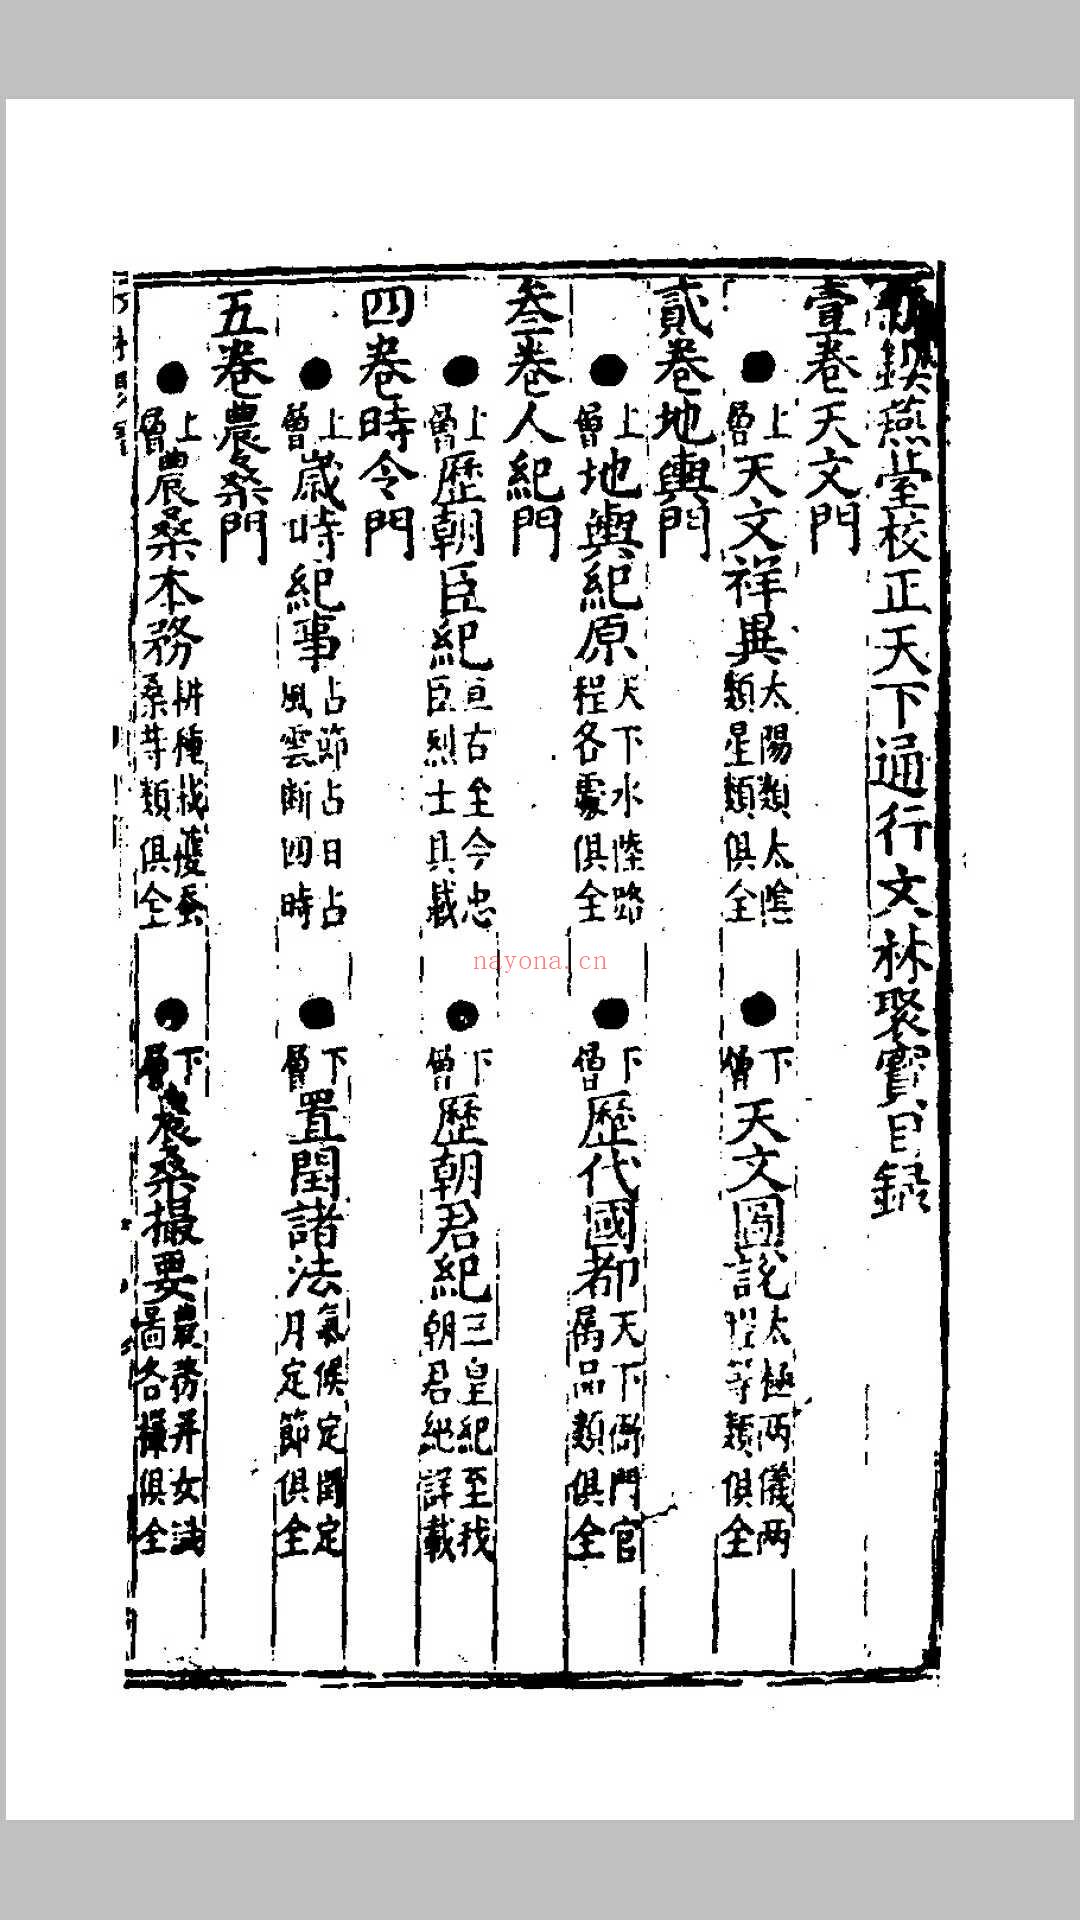 鍥燕堂校正天下通行文林聚寳目録
壹卷天文門
●上層天文祥異太陽類太陰類星類俱全 ●下層天文圖説太極兩儀兩曜等類俱全
貳卷地輿門
●上層地輿紀原天下水陸路程各處俱全 ●下層歷代國都天下衙門官屬品類俱全
叁卷人紀門
●上層歷朝臣紀亘古至今忠臣烈士具載 ●下層歷朝君紀三皇紀至我朝君紀詳載
四卷時令門
●上層歲時紀事占節占日占風雲断四時 ●下層置閏諸法氣候定閏定月定節俱全
五卷農桑門
●上層農桑本務耕種栽𫉬蚕桑等類俱全 ●下層農桑撮要農務并女識圖各樣俱全
nayona.cn